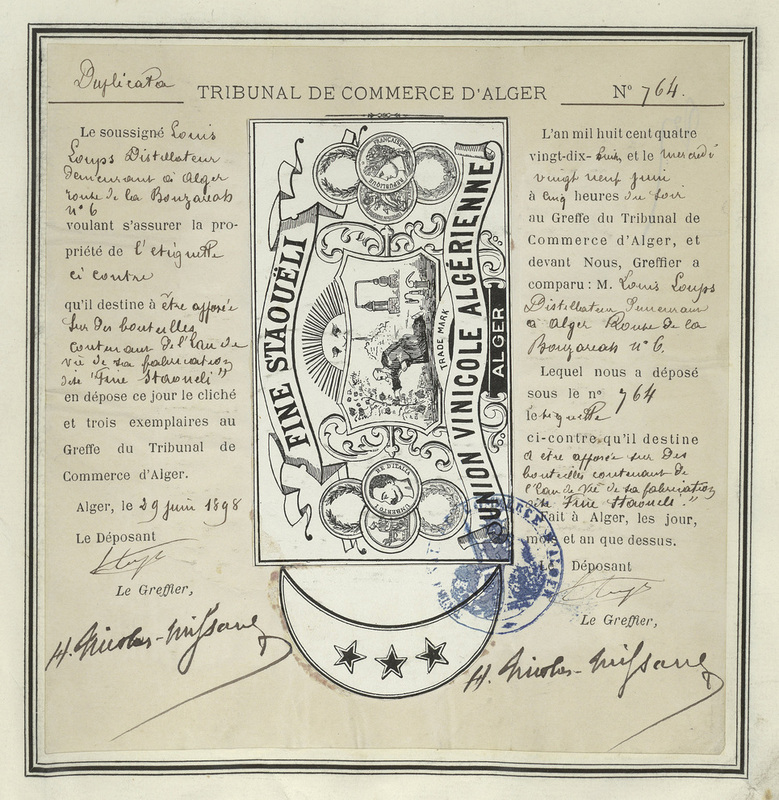 Duplicata
TRIBUNAL DE COMMERCE D'ALGER
N° 764.
Le soussigné Louis
Loups Distillateur
demeurant à Alger
route de la Bouzareah
n° 6
voulant s'assurer la pro-
priété de l'etiquette
ci contre
qu'il destine à être apposée
sur des bouteilles
contenant de l'Eau de
vie de sa fabrication
dite "Fine Staoueli"
en dépose ce jour le cliché
et trois exemplaires au
Greffe du Tribunal de
Commerce d'Alger.
Alger, le 29 juin 1898
Le Déposant
Le Greffier,
H. Nicolas-
FINE STAOUËLI
TRADE MARK
UNION VINICOLE ALGÉRIENNE
ALGER
FRANÇAISE
RE D'ITALIA
UMBERTO
L'an mil huit cent quatre
vingt-dix-huit, et le mercredi
vingt neuf juin
à cinq heures du soir
au Greffe du Tribunal de
Commerce d'Alger, et
devant Nous, Greffier a
comparu : M. Louis Loups
Distillateur Demeurant
à Alger Route de la
Bouzareah n° 6.
Lequel nous a déposé
sous le n° 764
l'etiquette
ci-contre qu'il destine
à être apposée sur des
bouteilles contenant de
l'Eau de Vie de sa fabrication
dite "Fine Staoueli."
Fait à Alger, les jour,
mois et an que dessus.
Le Déposant
Le Greffier,
H. Nicolas-